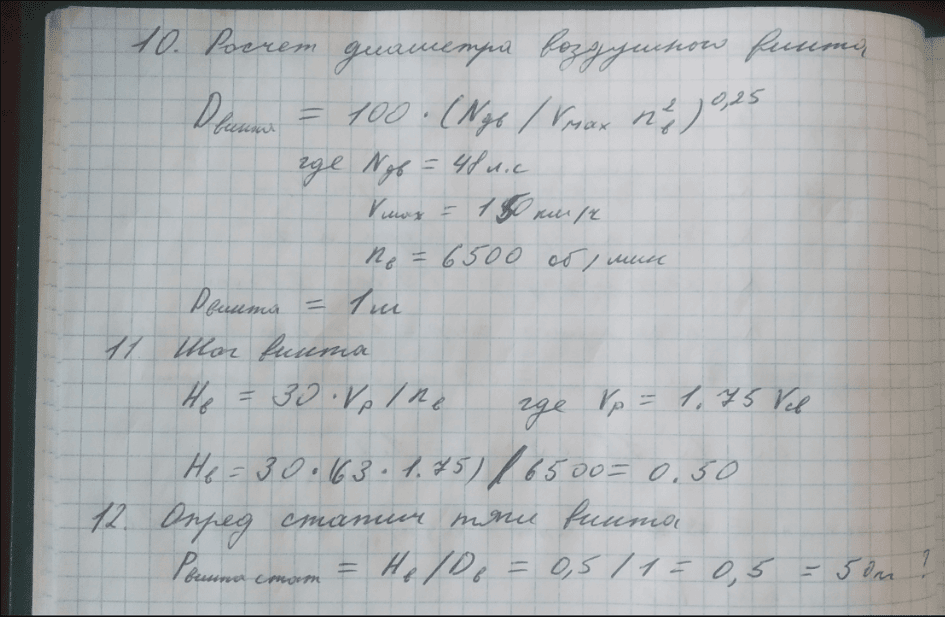 10. Расчет диаметра воздушного винта
Dвинта = 100 · (Nдв / Vmax nв²)^0,25
где Nдв = 48 л.с
Vmax = 150 км/ч
nв = 6500 об/мин
Dвинта = 1м
11 Шаг винта
Hв = 30 · Vр / nв где Vр = 1.75 Vсв
Hв = 30 · (63 · 1.75) / 6500 = 0.50
12. Опред статич тяги винта
Pвинта стат = Hв / Dв = 0,5 / 1 = 0,5 = 50 ?